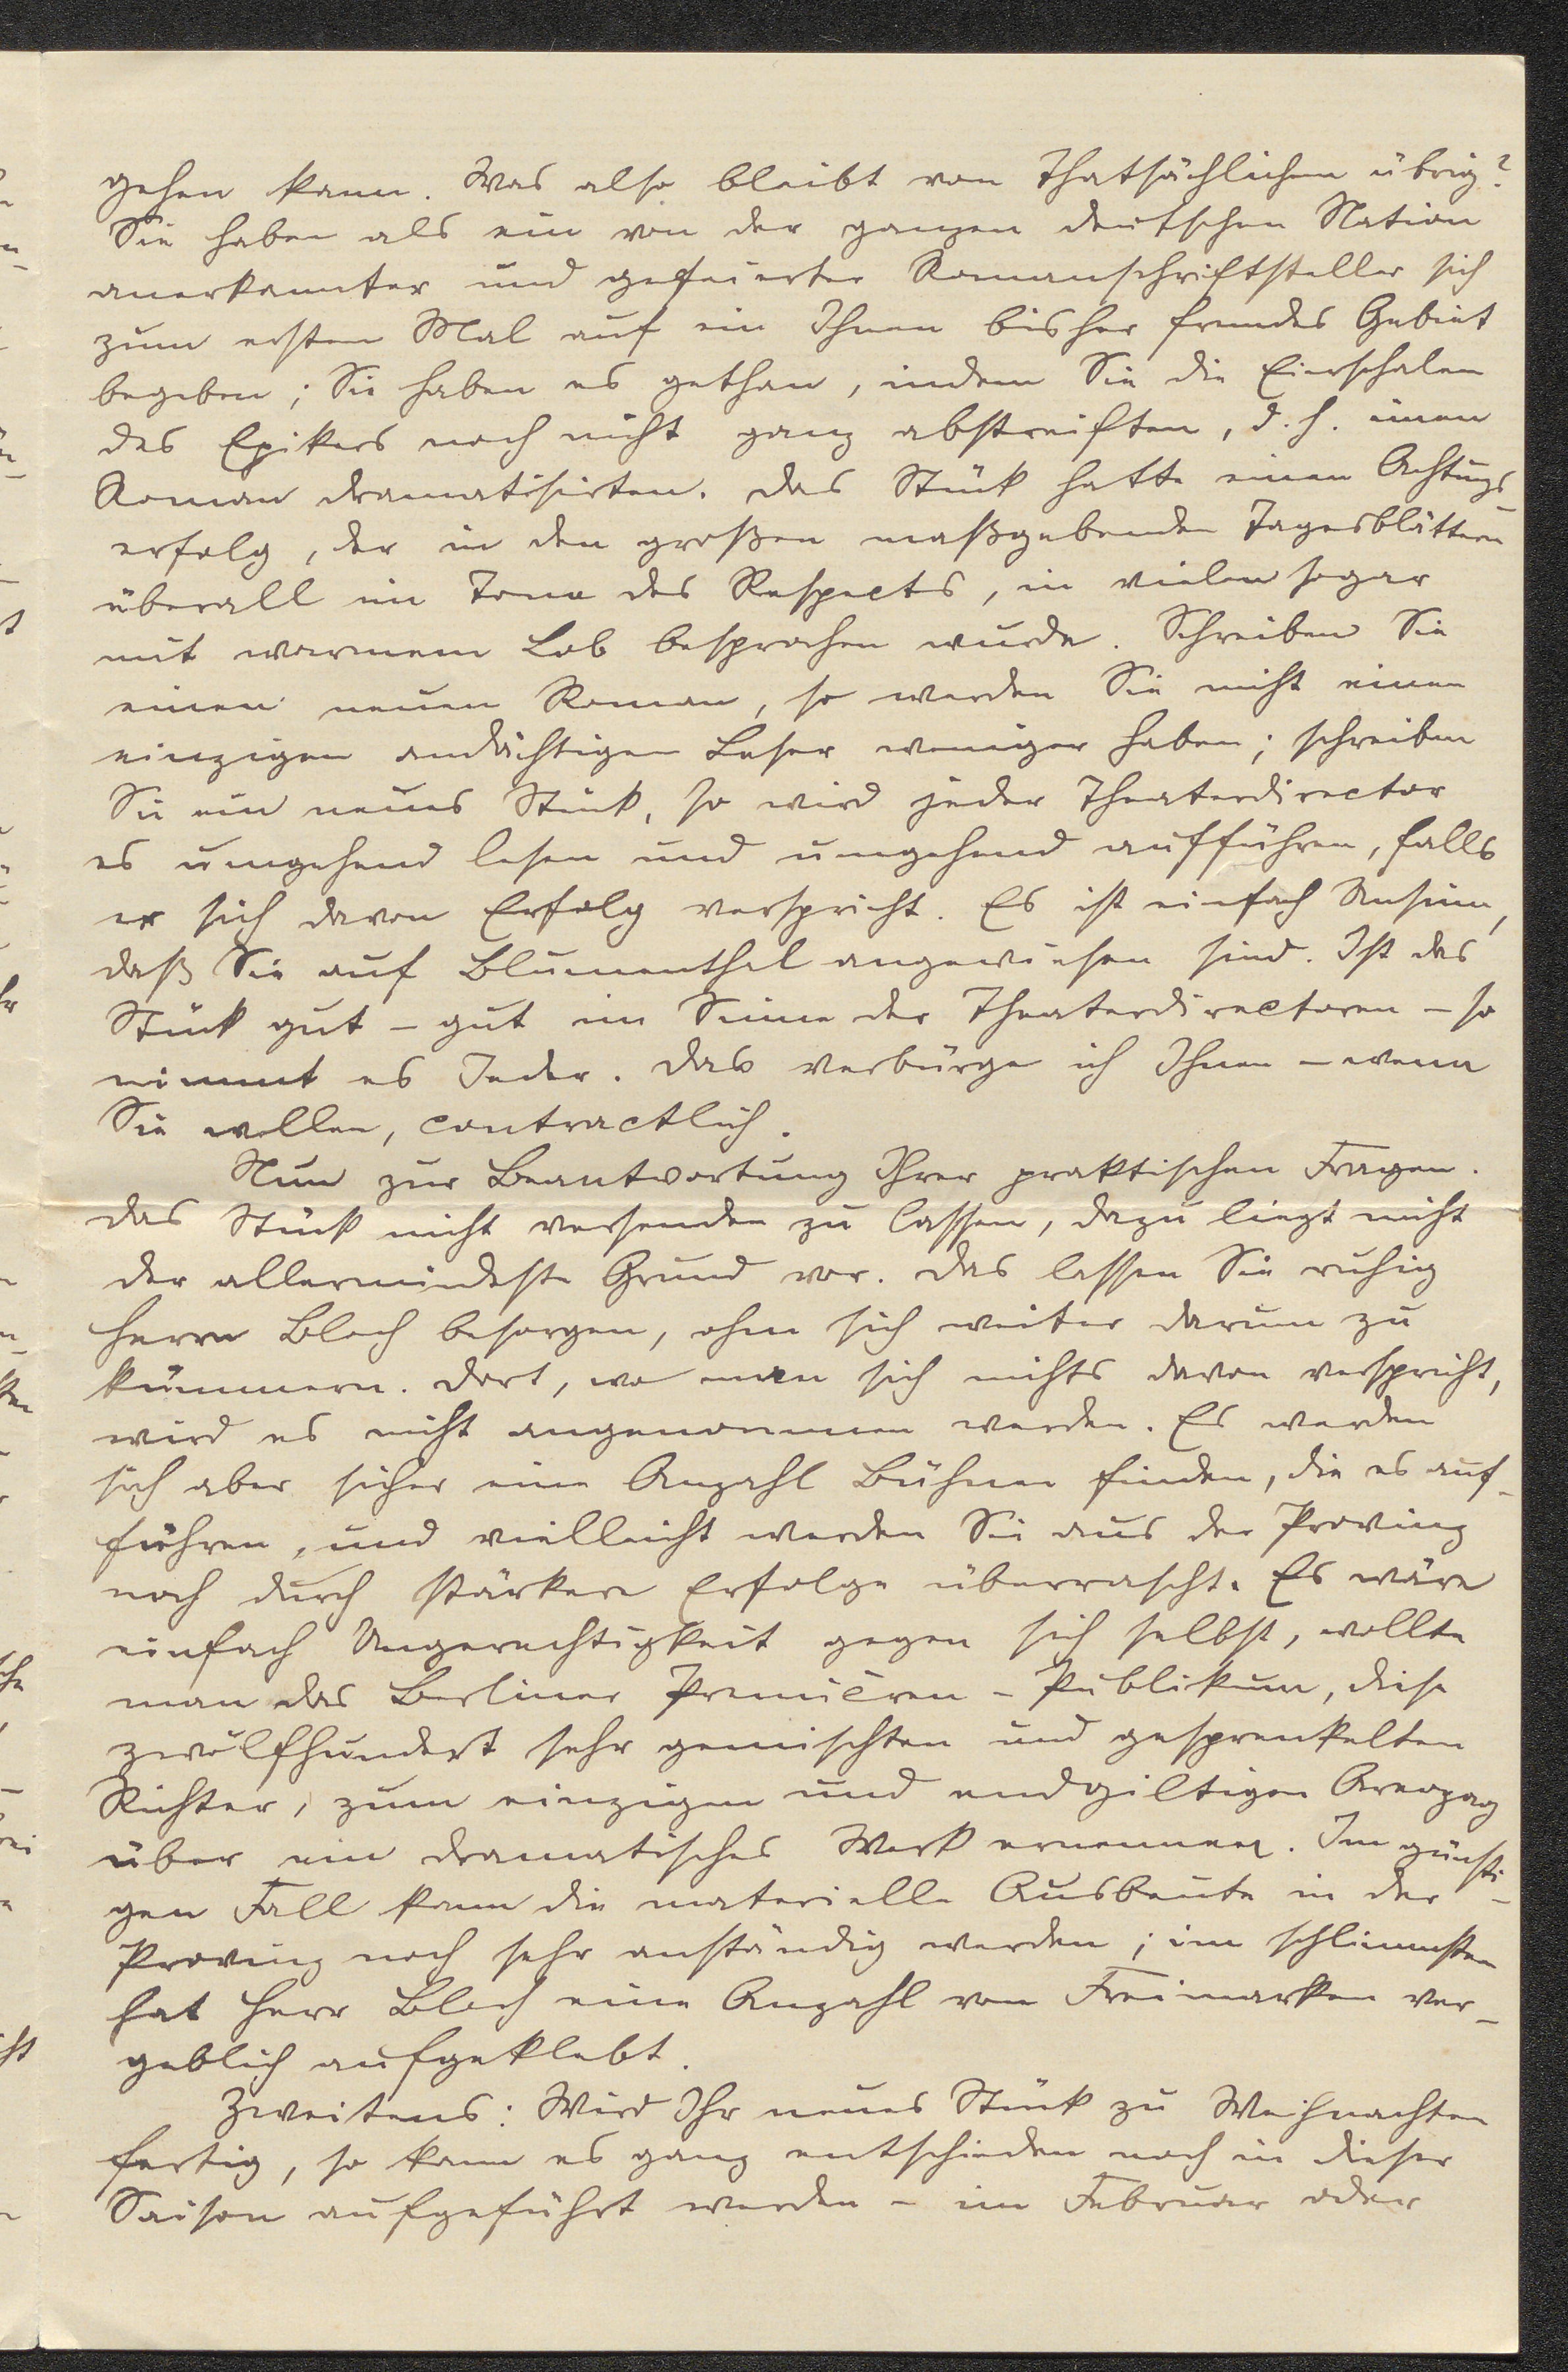 gehen kann. Was also bleibt von Thatsächlichem übrig?
Sie haben als ein von der ganzen deutschen Nation
anerkannter und gefeierter Romanschriftsteller sich
zum ersten Mal auf ein Ihnen bisher fremdes Gebiet
begeben; Sie haben es gethan, indem Sie die Eierschalen
des Epikers noch nicht ganz abstreiften, d. h. einen
Roman dramatisirten. Das Stück hatte einen Achtungs-
erfolg, der in den großen maßgebenden Tagesblättern
überall im Tone des Respects, in vielen sogar
mit warmem Lob besprochen wurde. Schreiben Sie
einen neuen Roman, so werden Sie nicht einen
einzigen andächtigen Leser weniger haben; schreiben
Sie ein neues Stück, so wird jeder Theaterdirector
es umgehend lesen und umgehend aufführen, falls
er sich davon Erfolg verspricht. Es ist einfach Unsinn,
daß Sie auf Blumenthal angewiesen sind. Ist das
Stück gut – gut im Sinne der Theaterdirectoren – so
nimmt es Jeder. Das verbürge ich Ihnen – wenn
Sie wollen, contractlich.
Nun zur Beantwortung Ihrer praktischen Fragen.
Das Stück nicht versenden zu lassen, dazu liegt nicht
der allermindeste Grund vor. Das lassen Sie ruhig
Herrn Bloch besorgen, ohne sich weiter darum zu
kümmern. Dort, wo man sich nichts davon verspricht,
wird es nicht angenommen werden. Es werden
sich aber sicher eine Anzahl Bühnen finden, die es auf-
führen, und vielleicht werden Sie aus der Provinz
noch durch stärkere Erfolge überrascht. Es wäre
einfach Ungerechtigkeit gegen sich selbst, wollte
man das Berliner Premièren-Publikum, diese
zwölfhundert sehr gemischten und gesprenkelten
Richter, zum einzigen und endgiltigen Areopag
über ein dramatisches Werk ernennen. Im günsti-
gen Fall kann die materielle Ausbeute in der
Provinz noch sehr anständig werden; im schlimmsten
hat Herr Bloch eine Anzahl von Freimarken ver-
geblich aufgeklebt.
Zweitens: Wird Ihr neues Stück zu Weihnachten
fertig, so kann es ganz entschieden noch in dieser
Saison aufgeführt werden – im Februar oder